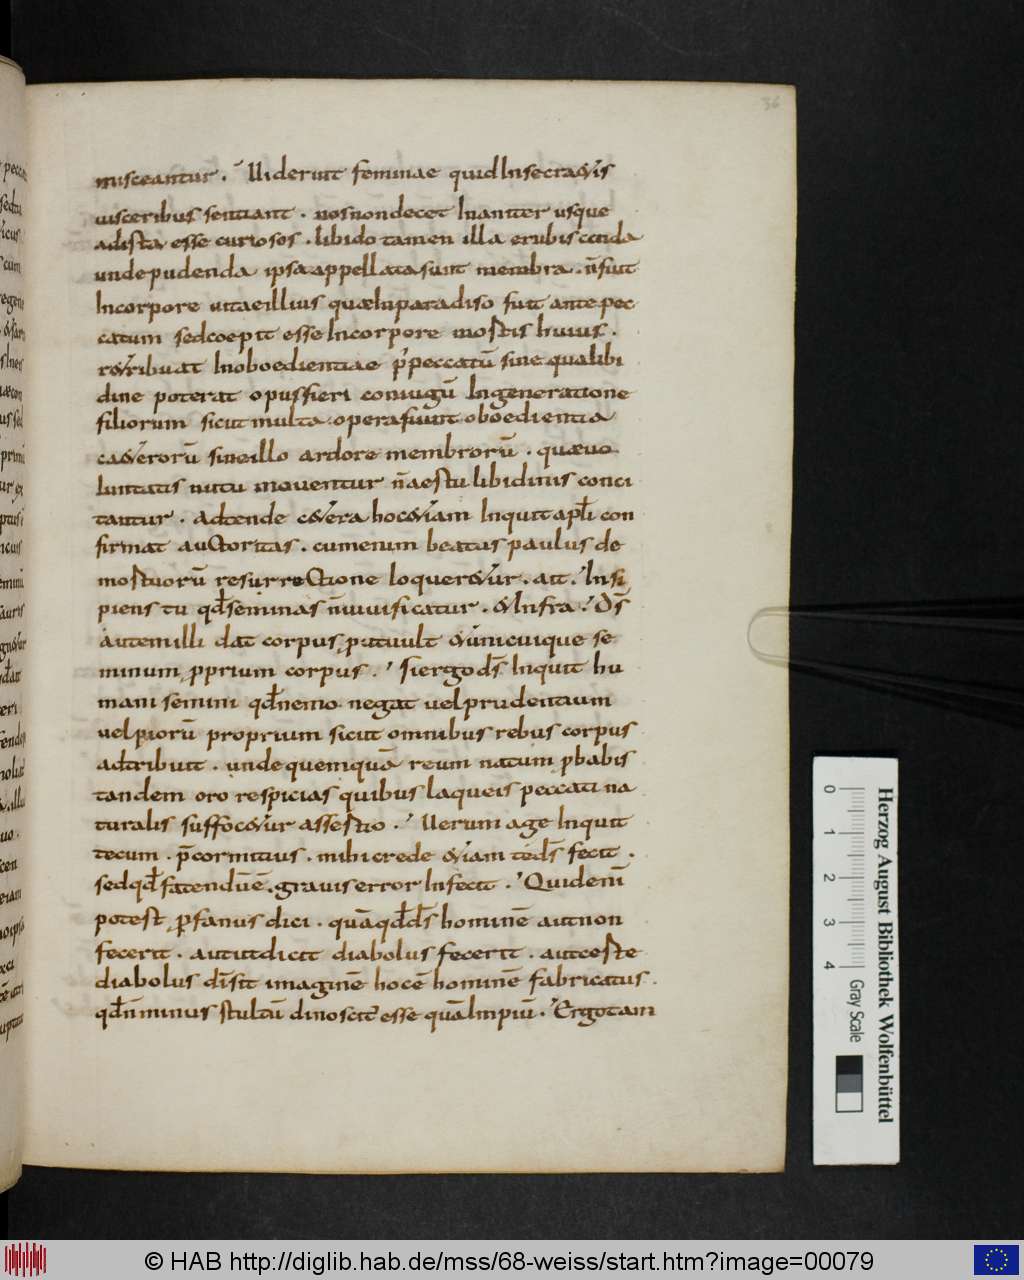 36
misceantur. Uiderint feminae quid Insecretis
uisceribus sentiant. nos non decet Inaniter usque
adista esse curiosos. libido tamen illa erubiscenda
unde pudenda ipsa appellata sunt membra. ñ fuit
Incorpore uitae illius quae Inparadiso fuit ante pec
catum sed coepit esse Incorpore mortis huius.
retributa Inoboedientiae p peccatū sine qua libi
dine poterat opus fieri coniugū Ingeneratione
filiorum sicut multa opera fiunt oboedientia
ceterorū sine illo ardore membrorū. quae uo
luntatis nutu mouentur ñ aestu libidinis conci
tantur. Adtende cetera hoc etiam Inquit apli con
firmat auctoritas. cum enim beatus paulus de
mortuorū resurrectione loqueretur. ait. Insi
piens tu qd seminas ñ uiuificatur. et Infra. Ds
autem illi dat corpus, put uult et unicuique se
minum, pprium corpus. si ergo ds Inquit hu
mani semini qd nemo negat uel prudentium
uel piorū proprium sicut omnibus rebus corpus
adtribuit. unde quemquā reum natum, pbabis
tandem oro respicias quibus laqueis peccati na
turalis suffocetur assertio. Uerum age Inquit
tecum. p̄ cor mitius. mihi crede etiam te ds fecit.
sed qd fatendūē. grauis error Infecit. Quid enī
potest, pfanus dici. quā qd ds hominē aut non
fecerit. aut ut dicit diabolus fecerit. aut certe
diabolus dī sit imaginē hocē hominē fabricatus.
qd ñ minus stultū dinoscit esse quā Impiū. Ergo tam
Herzog August Bibliothek Wolfenbüttel
0 1 2 3 4 Gray Scale
© HAB http://diglib.hab.de/mss/68-weiss/start.htm?image=00079